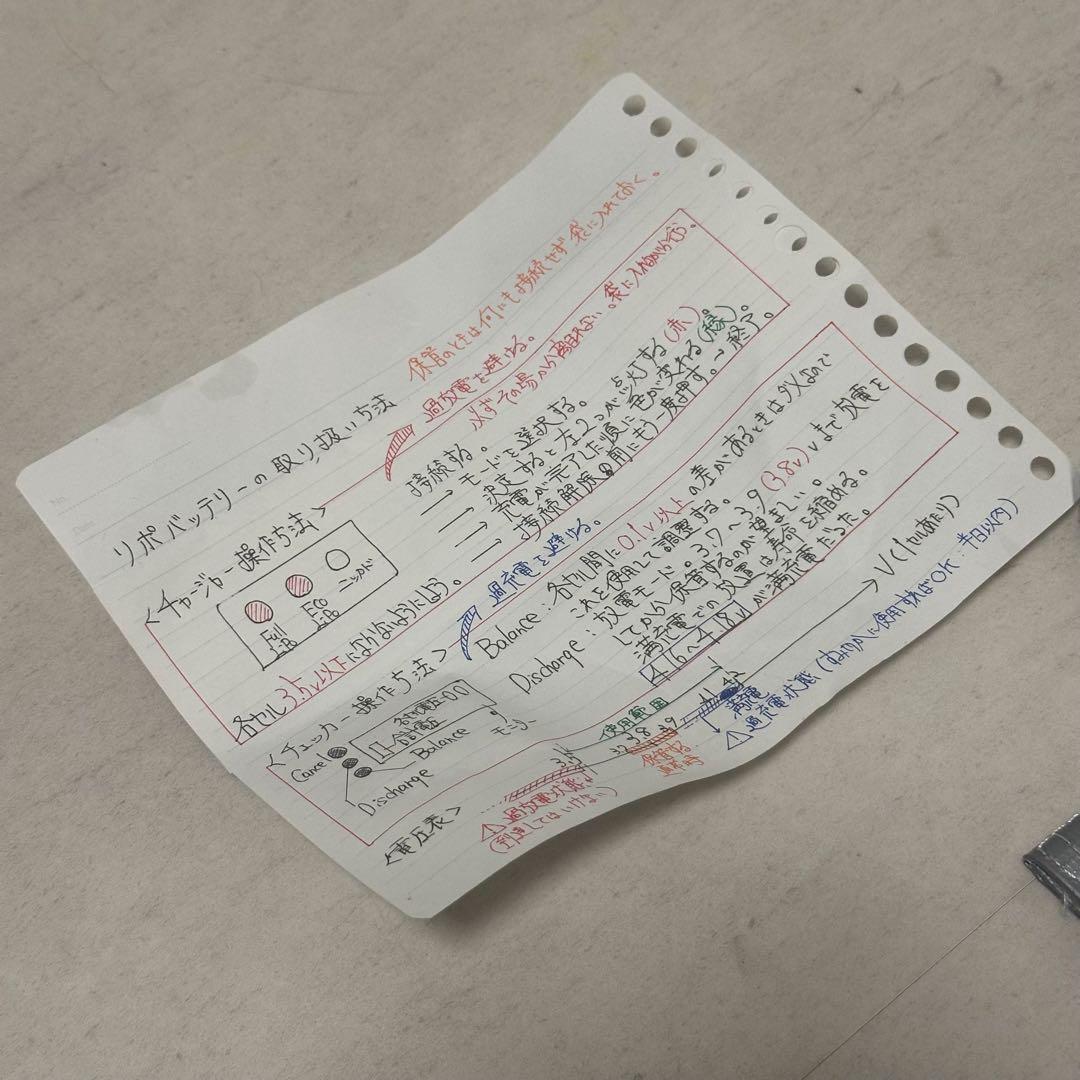 リポバッテリーの取り扱い方法
保管のときは何にも接続せず袋に入れておく。
<チャージャー操作方法>
過放電を避ける。
必ずその場から離れない。袋に入れ
Full
LiPo
Eco
LiPo
ニッカド
接続する。
→ モードを選択する。
→ 決定すると左2つが点灯する(赤)。
→ 充電が完了した頃に色が変わる(緑)。
→ 接続解除の前にもう一度押す。→ 終了。
各セル3.5v以下にならないようにしよう。
<チェッカー操作方法>
過充電を避ける。
Cance
Discharge
Balance
モニター
各セル電圧
合計電圧
Balance: 各セル間に0.1v以上の差があるときはダメなので
これを使用して調整する。
Discharge: 放電モード。3.7~3.9(3.8v)vまで放電を
してから保管するのが望ましい。
満充電での放置は寿命を縮める。
4.16~4.18vが満充電だった。
<電圧表>
使用範囲
3.5
3.7 3.8 3.9
4.2
V(1セルあたり)
保管する
満充電
⚠過放電状態
(到達してはいけない)
⚠過充電状態(すみやかに使用すればOK:半日以内)